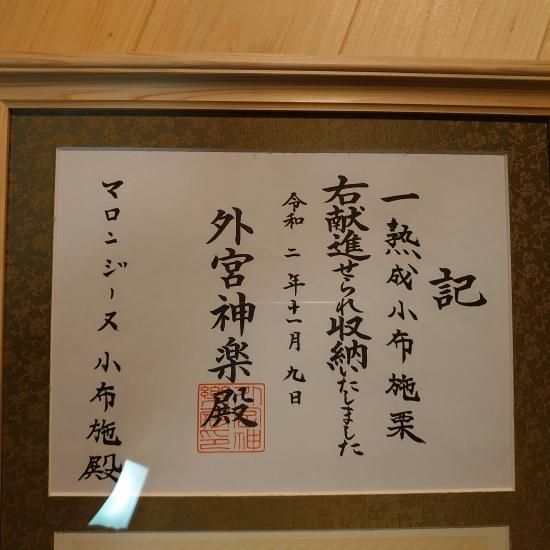 記
一 熟成小布施栗
右献進せられ収納いたしました
令和二年十一月九日
外宮神楽殿
マロニジース 小布施殿